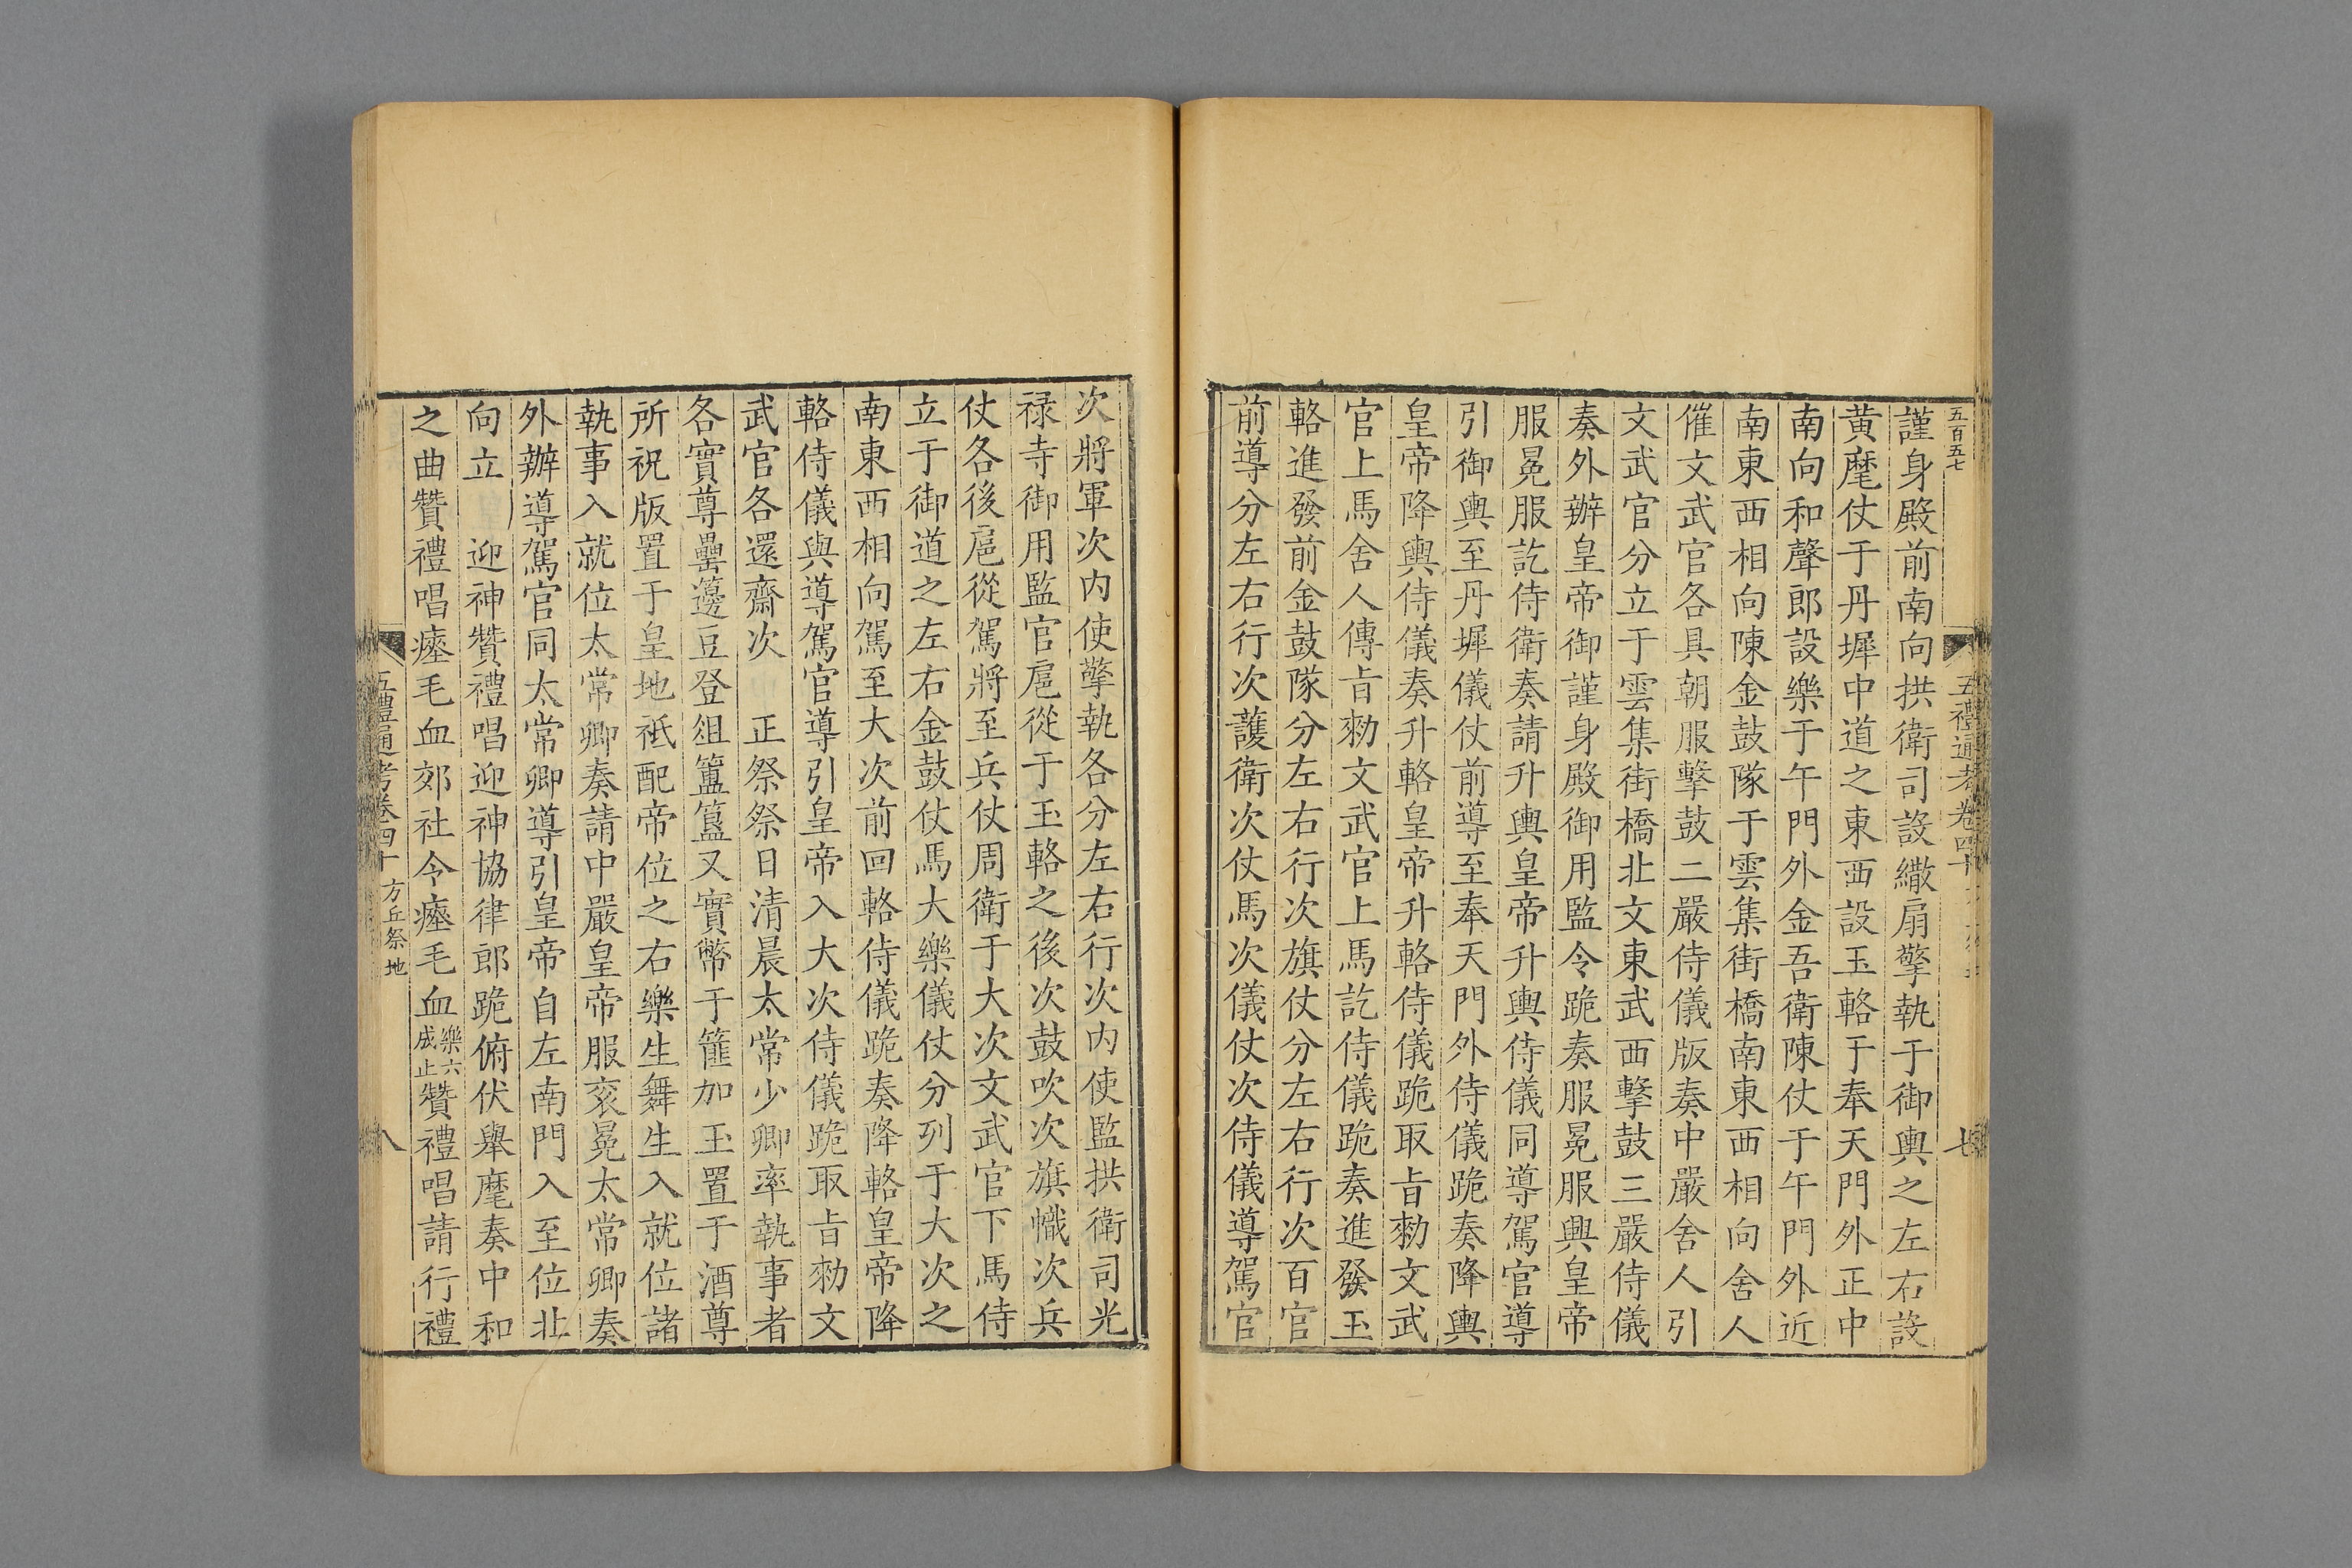 五百五七
五禮通考卷四十
七
謹身殿前南向拱衛司設繖扇擎執于御輿之左右設
黃麾仗于丹墀中道之東西設玉輅于奉天門外正中
南向和聲郎設樂于午門外金吾衛陳仗于午門外近
南東西相向陳金鼓隊于雲集街橋南東西相向舍人
催文武官各具朝服擊鼓二嚴侍儀版奏中嚴舍人引
文武官分立于雲集街橋北文東武西擊鼓三嚴侍儀
奏外辦皇帝御謹身殿御用監令跪奏服冕服興皇帝
服冕服訖侍衛奏請升輿皇帝升輿侍儀同導駕官導
引御輿至丹墀儀仗前導至奉天門外侍儀跪奏降輿
皇帝降輿侍儀奏升輅皇帝升輅侍儀跪取旨勑文武
官上馬舍人傳旨勑文武官上馬訖侍儀跪奏進發玉
輅進發前金鼓隊分左右行次旗仗分左右行次百官
前導分左右行次護衛次仗馬次儀仗次侍儀導駕官
次將軍次内使擎執各分左右行次内使監拱衛司光
祿寺御用監官扈從于玉輅之後次鼓吹次旗幟次兵
仗各後扈從駕將至兵仗周衛于大次文武官下馬侍
立于御道之左右金鼓仗馬大樂儀仗分列于大次之
南東西相向駕至大次前回輅侍儀跪奏降輅皇帝降
輅侍儀與導駕官導引皇帝入大次侍儀跪取旨勑文
武官各還齋次 正祭祭日清晨太常少卿率執事者
各實尊罍籩豆登俎簠簋又實幣于篚加玉置于酒尊
所祝版置于皇地祇配帝位之右樂生舞生入就位諸
執事入就位太常卿奏請中嚴皇帝服衮冕太常卿奏
外辦導駕官同太常卿導引皇帝自左南門入至位北
向立 迎神贊禮唱迎神協律郎跪俯伏舉麾奏中和
之曲贊禮唱瘞毛血郊社令瘞毛血樂六成止贊禮唱請行禮
五禮通考卷四十 方丘祭地
八